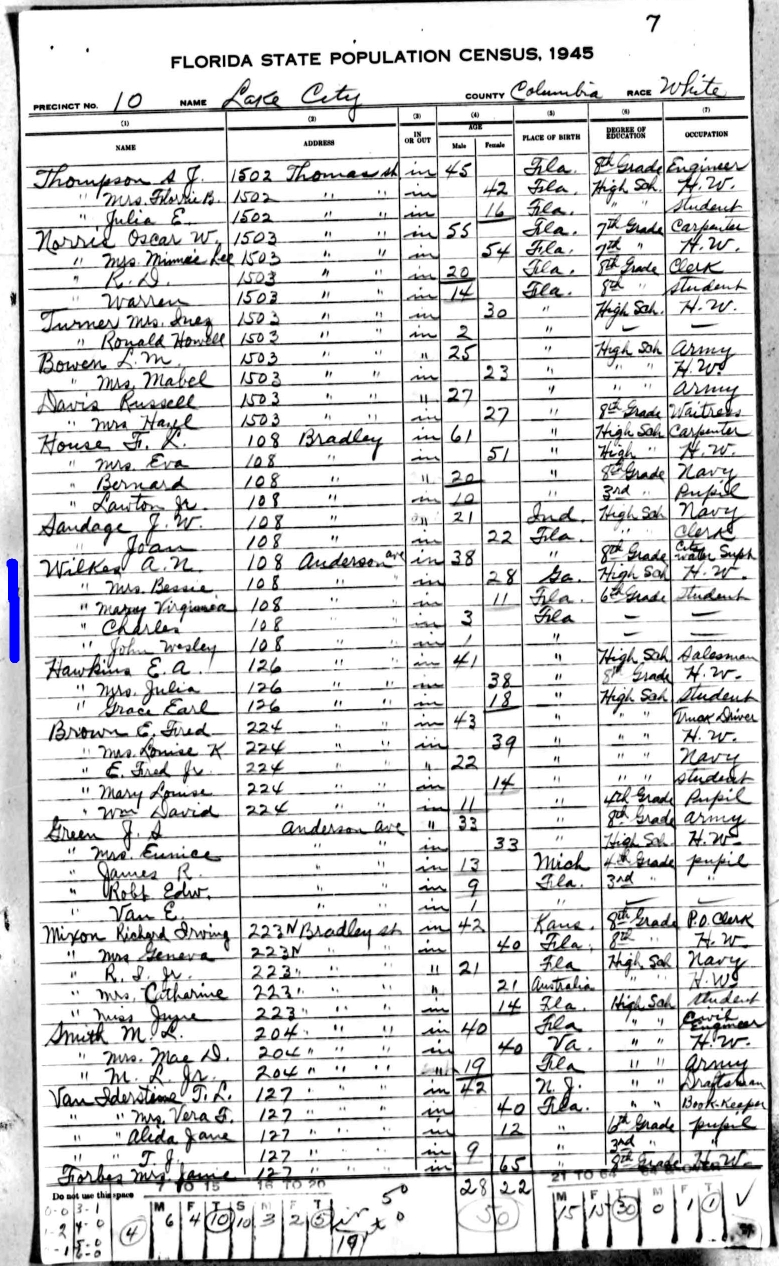 7
FLORIDA STATE POPULATION CENSUS, 1945
PRECINCT NO. 10 NAME Lake City COUNTY Columbia RACE White
(1) (2) (3) (4) (5) (6) (7)
NAME ADDRESS IN OR OUT AGE Male Female PLACE OF BIRTH DEGREE OF EDUCATION OCCUPATION
Thompson S J. 1502 Thomas st in 45 Fla. 8th Grade Engineer
" Mrs. Florrie B. 1502 " " in 42 Fla. High Sch. H.W.
" Julia E. 1502 " " in 16 Fla. " " student
Norris Oscar W. 1503 " " in 55 Fla. 7th Grade Carpenter
" Mrs Minnie Lee 1503 " " in 54 Fla. 7th " H.W.
" R. D. 1503 " " in 20 Fla. 8th Grade Clerk
" Warren 1503 " " in 14 Fla. 8th " student
Turner Mrs. Inez 1503 " " in 30 " High Sch. H.W.
" Ronald Howell 1503 " " in 2 " — —
Bowen L. M. 1503 " " " 25 " High Sch Army
" Mrs. Mabel 1503 " " in 23 " " " H.W.
Davis Russell 1503 " " " 27 " " " Army
" Mrs Hazel 1503 " " in 27 " 8th Grade Waitress
House F. L. 108 Bradley in 61 " High Sch Carpenter
" Mrs. Eva 108 " in 51 " High " H.W.
" Bernard 108 " " 20 " 8th Grade Navy
" Lawton Jr. 108 " in 10 " 3rd " Pupil
Sandage J. W. 108 " " 21 Ind. High Sch Navy
" Joan 108 " in 22 Fla. " " Clerk
Wilkes A. N. 108 Anderson ave in 38 " 8th Grade City Water Supt
" Mrs. Bessie 108 " " in 28 Ga. High Sch H.W.
" Mary Virginia 108 " " in 11 Fla. 6th Grade student
" Charles 108 " " in 3 Fla — —
" John Wesley 108 " " in 1 " — —
Hawkins E. A. 126 " " in 41 " High Sch Salesman
" Mrs. Julia 126 " " in 38 " 8th Grade H.W.
" Grace Earl 126 " " in 18 " High Sch Student
Brown E. Fred 224 " " in 43 " " " Truck Driver
" Mrs. Louise K 224 " " in 39 " " " H.W.
" E. Fred Jr. 224 " " " 22 " " " Navy
" Mary Louise 224 " " in 14 " " " student
" Wm David 224 " " in 11 " 4th Grade Pupil
Green J. S Anderson ave " 33 " 8th Grade army
" Mrs. Eunice " " in 33 " High Sch. H.W.
" James R. " " in 13 Mich 4th Grade pupil
" Robt Edw. " " in 9 Fla. 3rd " "
" Van E. " " in 1 " — —
Mixon Richard Irving 223N Bradley st in 42 Kans. 8th Grade P.O. Clerk
" Mrs Geneva 223N " " in 40 Fla. 8th " H.W.
" R. I. Jr. 223 " " " " 21 Fla High Sch Navy
" Mrs. Catharine 223 " " " " 21 Australia " " H.W.
" Miss June 223 " " " in 14 Fla. High Sch student
Smith M. L. 204 " " " in 40 Fla " " Civil Engineer
" Mrs. Mae D. 204 " " " in 40 Va. " " H.W.
" M. L. Jr. 204 " " " 19 Fla " " Army
Van Iderstine T. L. 127 " " " in 42 N. J. " " Draftsman
" " Mrs. Vera F. 127 " " " in 40 Fla. " " Book-Keeper
" " Alida Jane 127 " " " in 12 " 6th Grade pupil
" " T. J. 127 " " " in 9 " 3rd " "
Forbes Mrs Jamie 127 " " " in 65 " 8th Grade H.W.
7 TO 15 16 TO 20 28 22 21 TO 64
Do not use this space
0-0 3-1
1-2 4-0
5-0
6-0
4
M 6 F 4 T 10 S 10 M 3 F 2 T 5 in 50 0 19 50 M 15 F 15 30 M 0 F 1 T 1 ✓